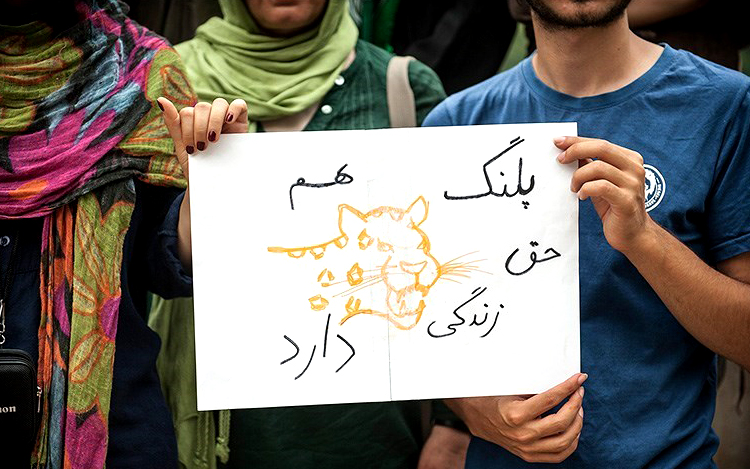 پلنگ هم
حق
زندگی
دارد
non